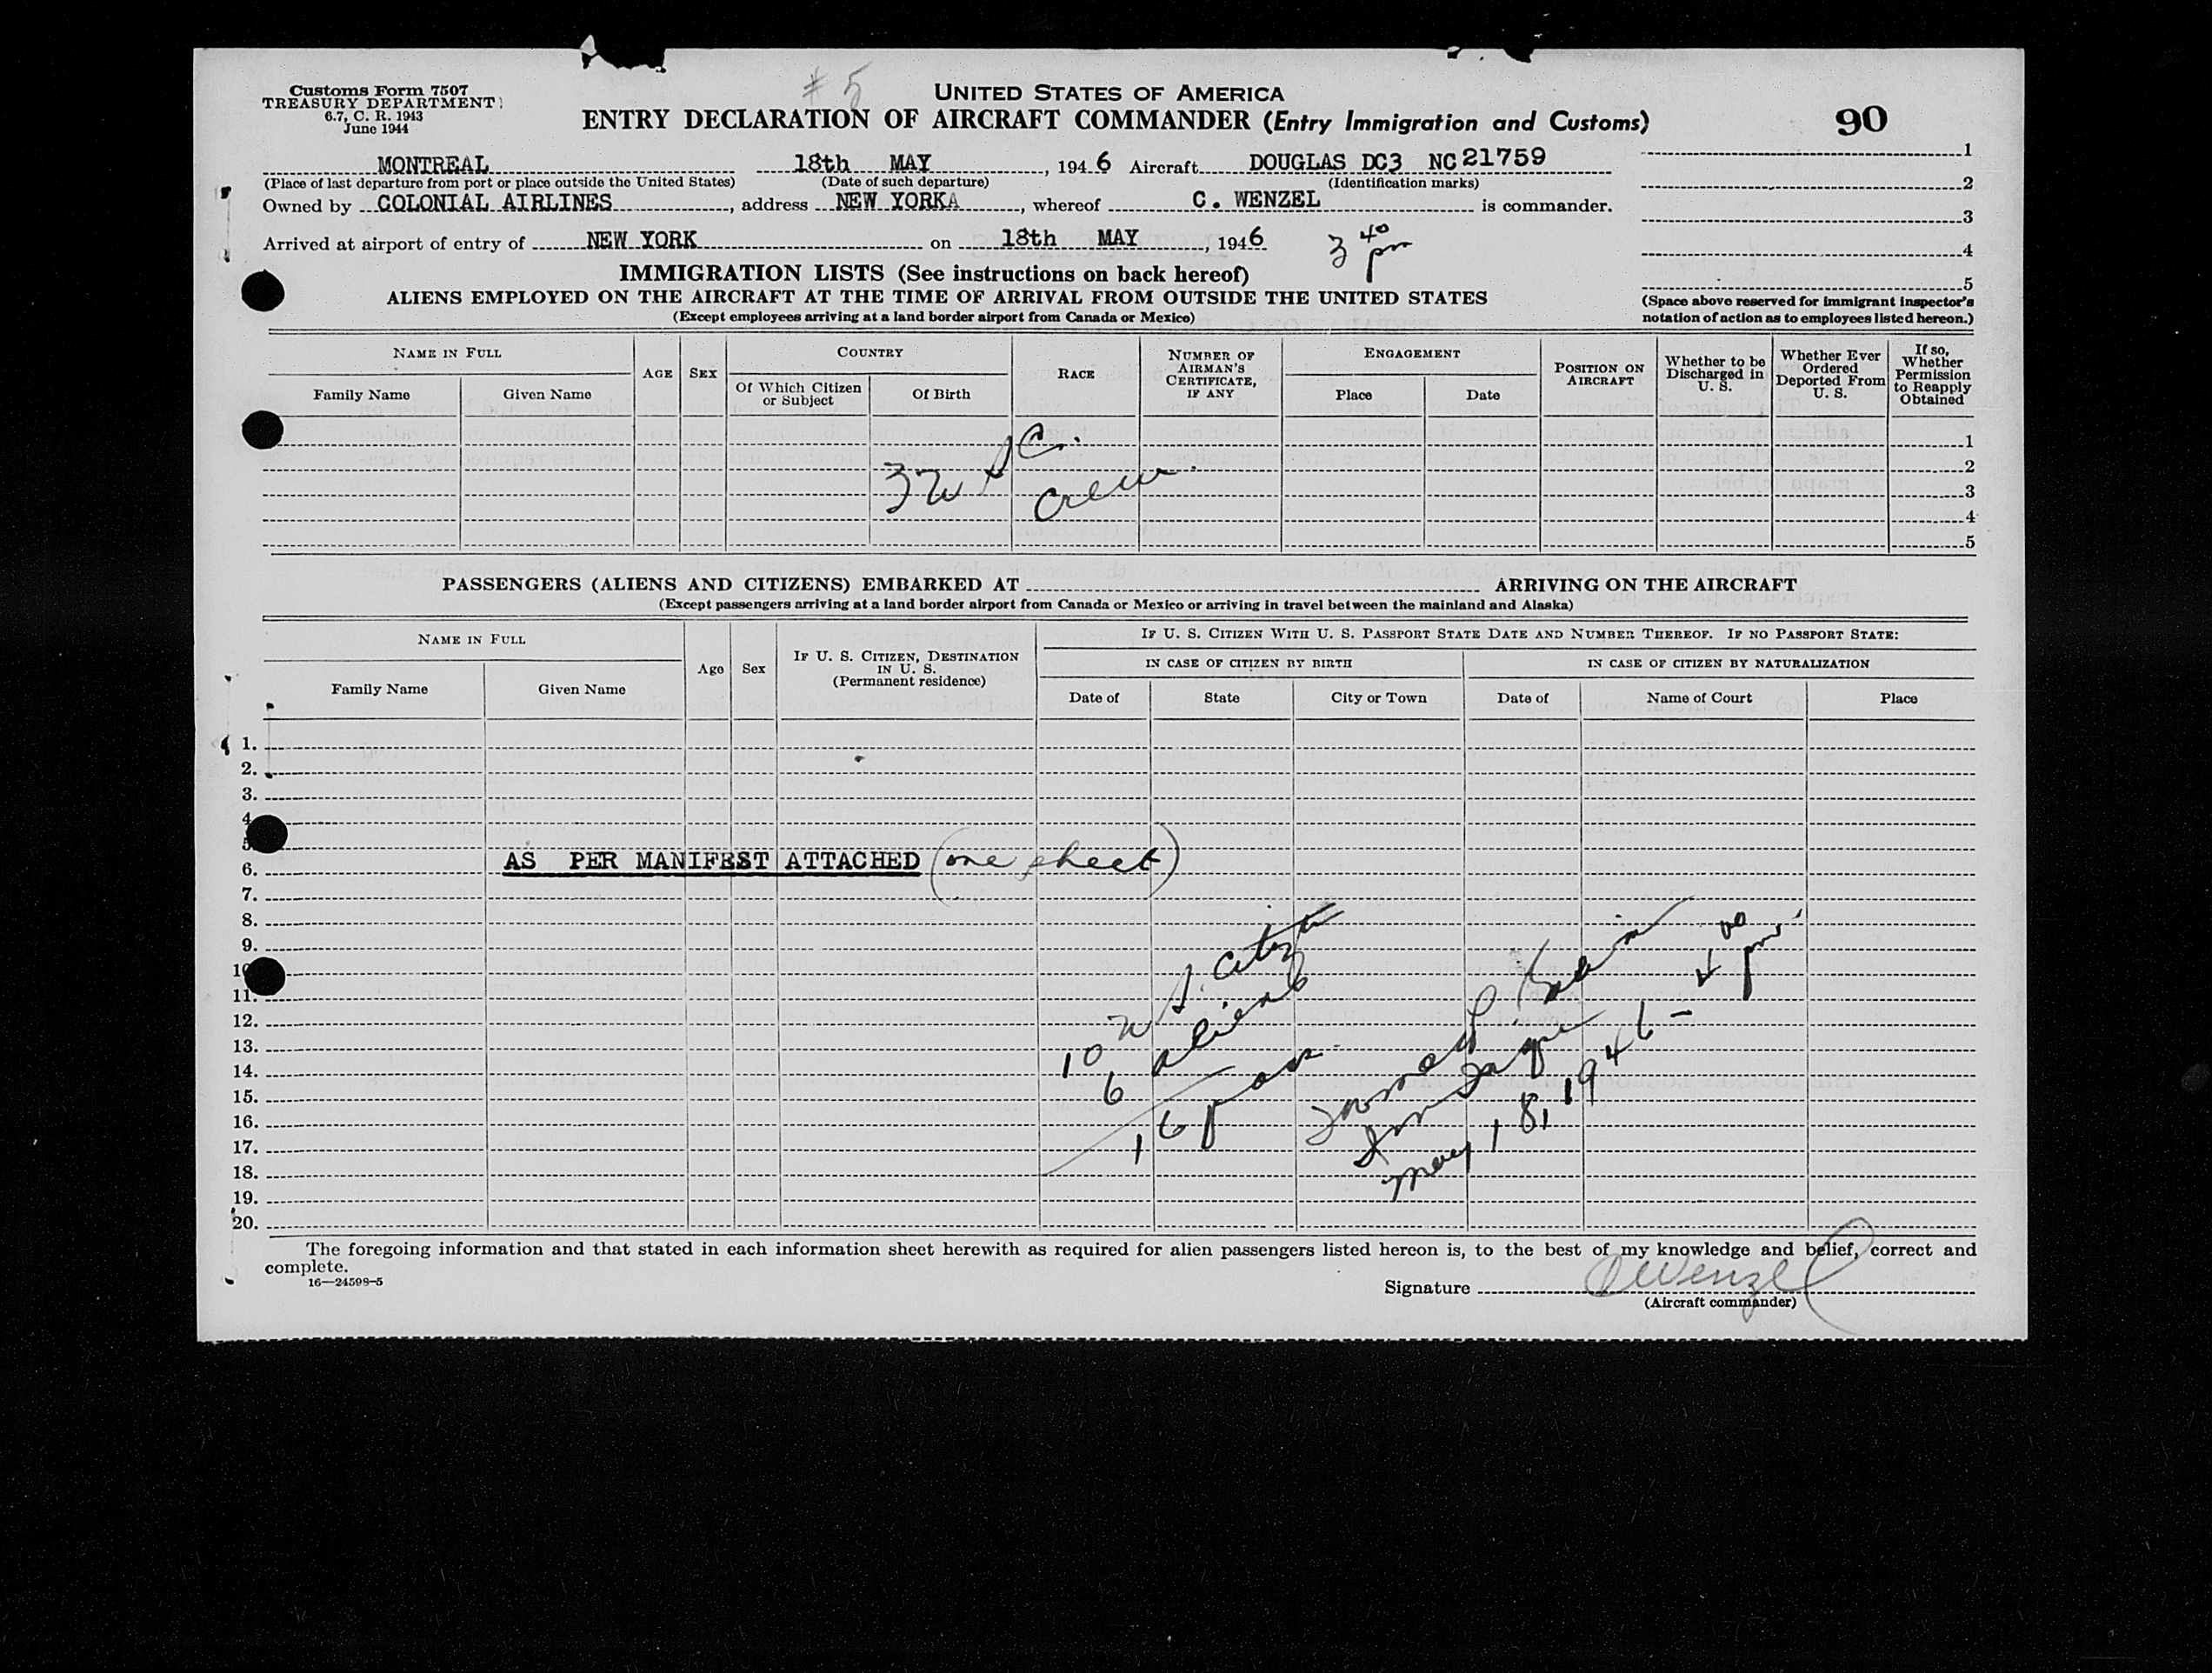 Customs Form 7507
TREASURY DEPARTMENT
6.7, C. R. 1943
June 1944
# 5
UNITED STATES OF AMERICA
ENTRY DECLARATION OF AIRCRAFT COMMANDER (Entry Immigration and Customs)
90
MONTREAL 18th MAY, 1946 Aircraft DOUGLAS DC3 NC 21759
(Place of last departure from port or place outside the United States) (Date of such departure) (Identification marks)
Owned by COLONIAL AIRLINES, address NEW YORKA, whereof C. WENZEL is commander.
Arrived at airport of entry of NEW YORK on 18th MAY, 1946 3 40 pm
1
2
3
4
5
(Space above reserved for immigrant inspector's
notation of action as to employees listed hereon.)
IMMIGRATION LISTS (See instructions on back hereof)
ALIENS EMPLOYED ON THE AIRCRAFT AT THE TIME OF ARRIVAL FROM OUTSIDE THE UNITED STATES
(Except employees arriving at a land border airport from Canada or Mexico)
NAME IN FULL
Family Name
Given Name
AGE
SEX
COUNTRY
Of Which Citizen or Subject
Of Birth
RACE
NUMBER OF AIRMAN'S CERTIFICATE, IF ANY
ENGAGEMENT
Place
Date
POSITION ON AIRCRAFT
Whether to be Discharged in U. S.
Whether Ever Ordered Deported From U. S.
If so, Whether Permission to Reapply Obtained
1
2
3
4
5
3 U S C.
Crew.
PASSENGERS (ALIENS AND CITIZENS) EMBARKED AT ARRIVING ON THE AIRCRAFT
(Except passengers arriving at a land border airport from Canada or Mexico or arriving in travel between the mainland and Alaska)
NAME IN FULL
Family Name
Given Name
Age
Sex
IF U. S. CITIZEN, DESTINATION IN U. S.
(Permanent residence)
IF U. S. CITIZEN WITH U. S. PASSPORT STATE DATE AND NUMBER THEREOF. IF NO PASSPORT STATE:
IN CASE OF CITIZEN BY BIRTH
Date of
State
City or Town
IN CASE OF CITIZEN BY NATURALIZATION
Date of
Name of Court
Place
1.
2.
3.
4
5
6.
7.
8.
9.
10
11.
12.
13.
14.
15.
16.
17.
18.
19.
20.
AS PER MANIFEST ATTACHED (one sheet)
10 U S. Citzn
6 aliens
16 pass.
May 18, 1946 -
The foregoing information and that stated in each information sheet herewith as required for alien passengers listed hereon is, to the best of my knowledge and belief, correct and
complete.
16—24598-5
Signature C Wenzel
(Aircraft commander)